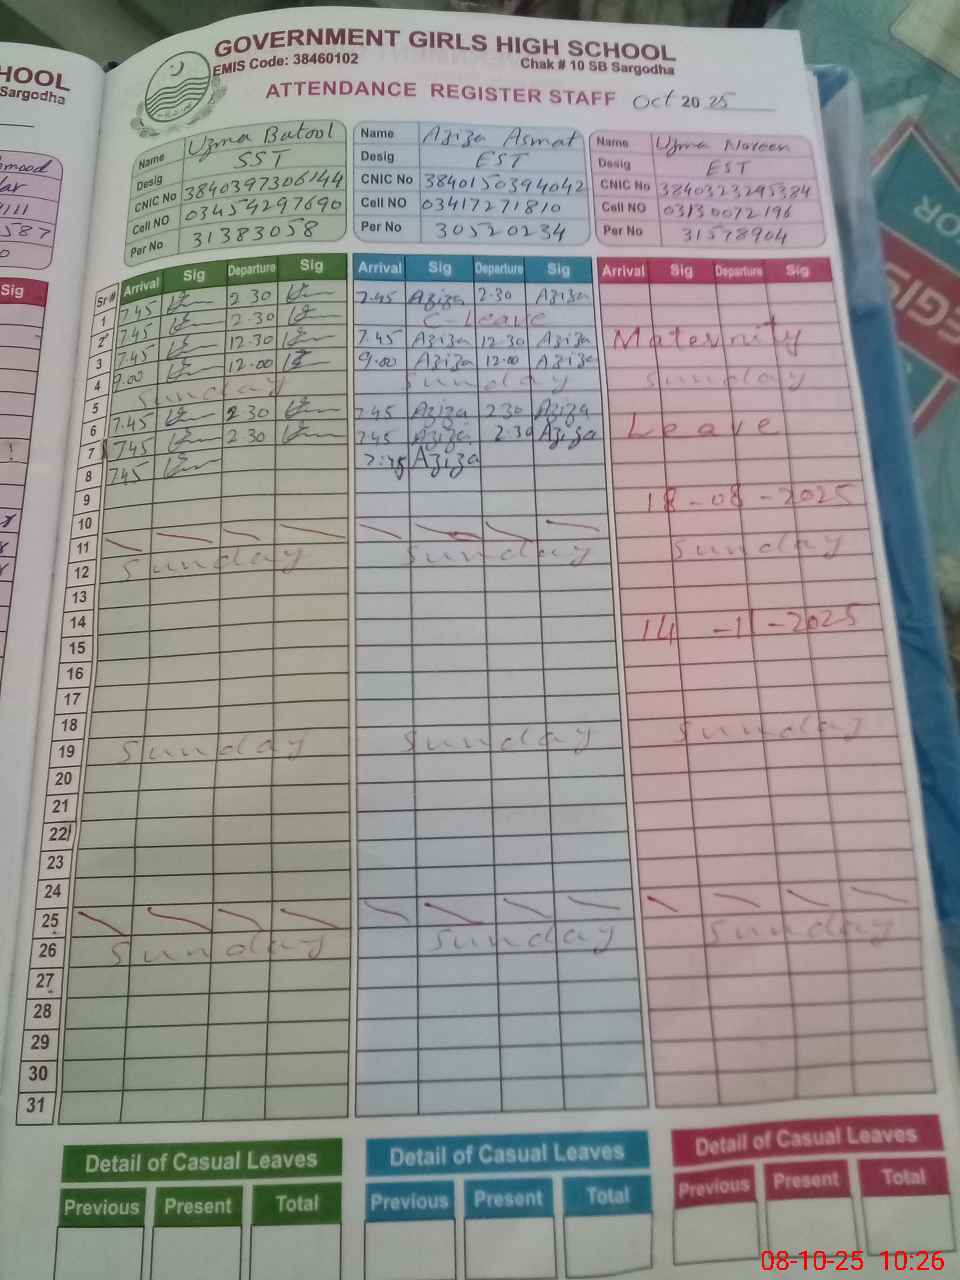 HOOL
Sargodha
GOVERNMENT GIRLS HIGH SCHOOL
EMIS Code: 38460102 Chak # 10 SB Sargodha
ATTENDANCE REGISTER STAFF Oct 2025
Name Uzma Batool
Desig SST
CNIC No 3840397306144
Cell NO 03454297690
Per No 31383058
Name Aziza Asmat
Desig EST
CNIC No 3840150394042
Cell NO 03417271810
Per No 30520234
Name Uzma Noreen
Desig EST
CNIC No 3840323295384
Cell NO 03130072196
Per No 31578904
Sig
Sr# Arrival Sig Departure Sig Arrival Sig Departure Sig Arrival Sig Departure Sig
1 7.45 2.30 7.45 Aziza 2.30 Aziza
2 7.45 2.30 C-Leave
3 7.45 12.30 7.45 Aziza 12.30 Aziza Maternity
4 9.00 12.00 9.00 Aziza 12.00 Aziza
5 Sunday Sunday Sunday
6 7.45 2.30 7.45 Aziza 2.30 Aziza
7 7.45 2.30 7.45 Aziza 2.30 Aziza Leave
8 7.45 7.45 Aziza
9
10 18-08-2025
11
12 Sunday Sunday Sunday
13
14
15 14-11-2025
16
17
18
19 Sunday Sunday Sunday
20
21
22
23
24
25
26 Sunday Sunday Sunday
27
28
29
30
31
Detail of Casual Leaves Detail of Casual Leaves Detail of Casual Leaves
Previous Present Total Previous Present Total Previous Present Total
08-10-25 10:26